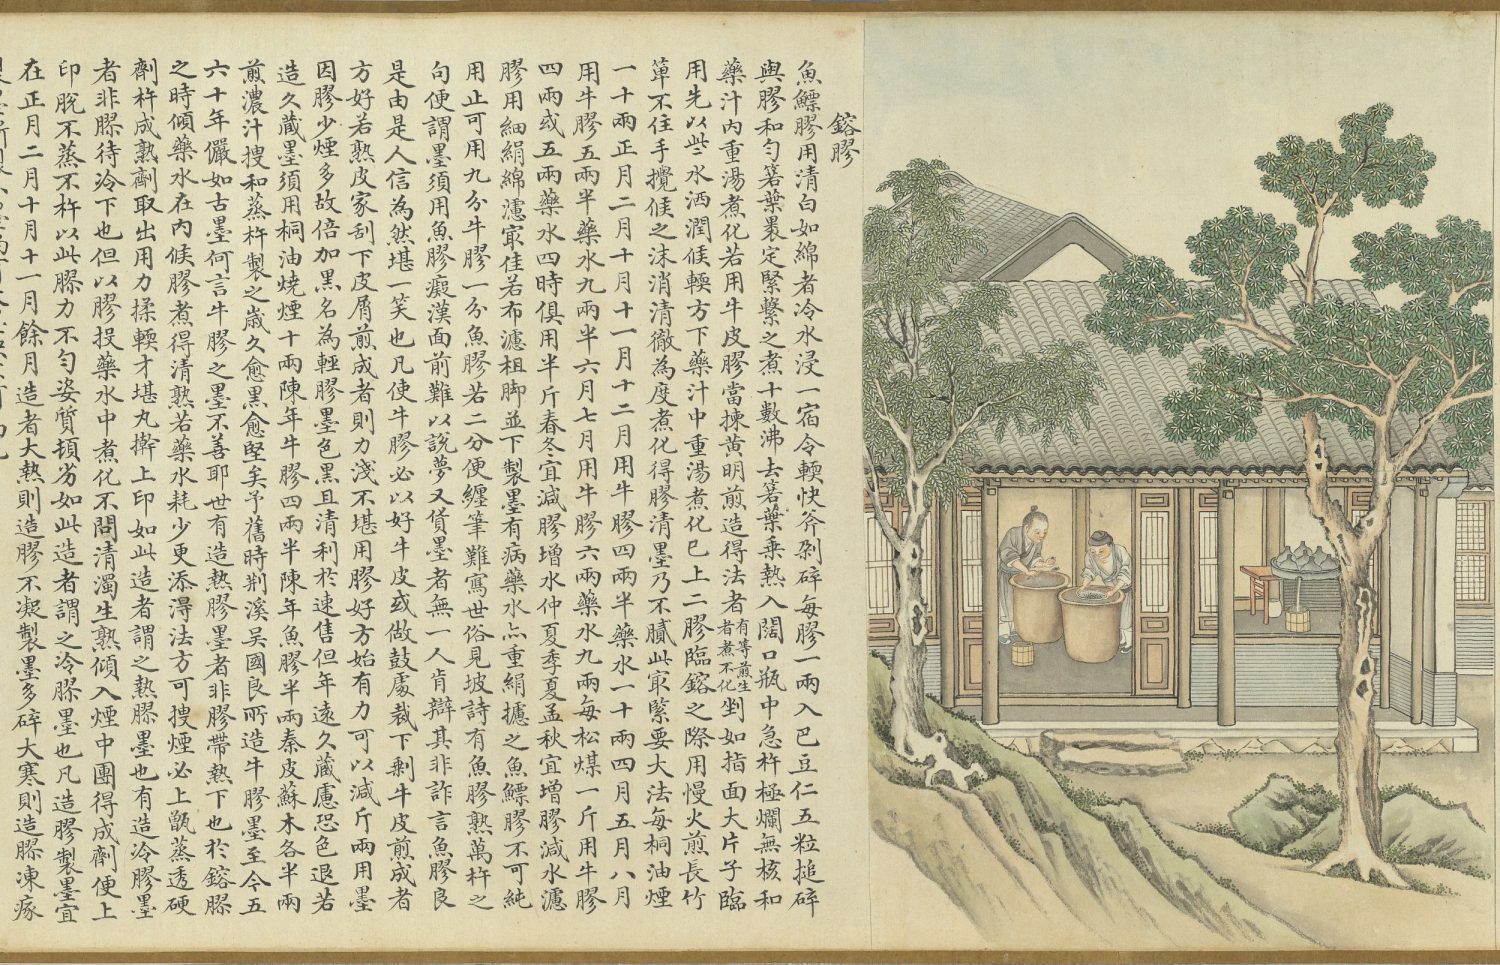 鎔膠
魚鰾膠用清白如綿者冷水浸一宿令輭快斧剁碎每膠一兩入巴豆仁五粒搥碎
與膠和勻箬葉裹定緊繫之煮十數沸去箬藥乘熱入闊口瓶中急杵極爛無核和
藥汁內重湯煮化若用牛皮膠當揀黄明煎造得法者有等煎生者煮不化剉如指面大片子臨
用先以些水洒潤候輭方下藥汁中重湯煮化已上二膠臨鎔之際用慢火煎長竹
箄不住手攪候之沫消清徹為度煮化得膠清墨乃不膩此㝡緊要大法每桐油煙
一十兩正月二月十月十一月十二月用牛膠四兩半藥水一十兩四月五月八月
用牛膠五兩半藥水九兩半六月七月用牛膠六兩藥水九兩每松煤一斤用牛膠
四兩或五兩藥水四時俱用半斤春冬宜減膠增水仲夏季夏孟秋宜增膠減水濾
膠用細絹綿濾㝡佳若布濾柤脚並下製墨有病藥水亦重絹攄之魚鰾膠不可純
用止可用九分牛膠一分魚膠若二分便纏筆難寫世俗見坡詩有魚膠熟萬杵之
句便謂墨須用魚膠癡漢面前難以說夢又貨墨者無一人肯辯其非詐言魚膠良
是由是人信為然堪一笑也凡使牛膠必以好牛皮或做鼓處裁下剩牛皮煎成者
方好若熟皮家刮下皮屑煎成者則力淺不堪用膠好方始有力可以減斤兩用墨
因膠少煙多故倍加黑名為輕膠墨色黑且清利於速售但年遠久藏慮恐色退若
造久藏墨須用桐油燒煙十兩陳年牛膠四兩半陳年魚膠半兩秦皮蘇木各半兩
煎濃汁搜和蒸杵製之歲久愈黑愈堅矣予舊時荆溪吴國良所造牛膠墨至今五
六十年儼如古墨何言牛膠之墨不善耶世有造熱膠墨者非膠帶熱下也於鎔膠
之時傾藥水在內候膠煮得清熟若藥水耗少更添淂法方可搜煙必上甑蒸透硬
劑杵成熟劑取出用力揉輭才堪丸擀上印如此造者謂之熱膠墨也有造冷膠墨
者非膠待冷下也但以膠投藥水中煮化不問清濁生熟傾入煙中團得成劑便上
印脫不蒸不杵以此膠力不勻姿質頓劣如此造者謂之冷膠墨也凡造膠製墨宜
在正月二月十月十一月餘月造者大熱則造膠不凝製墨多碎大寒則造膠凍瘃